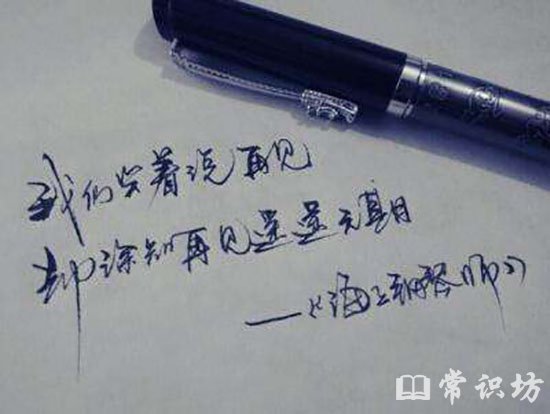 我们笑着说再见
却深知再见遥遥无期
——《海上钢琴师》
常识坊